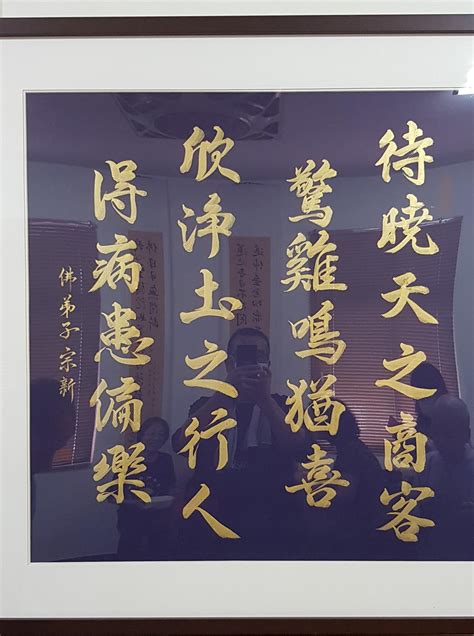 待曉天之商客
驚雞鳴猶喜
欣浄土之行人
得病患偏樂
佛弟子宗新